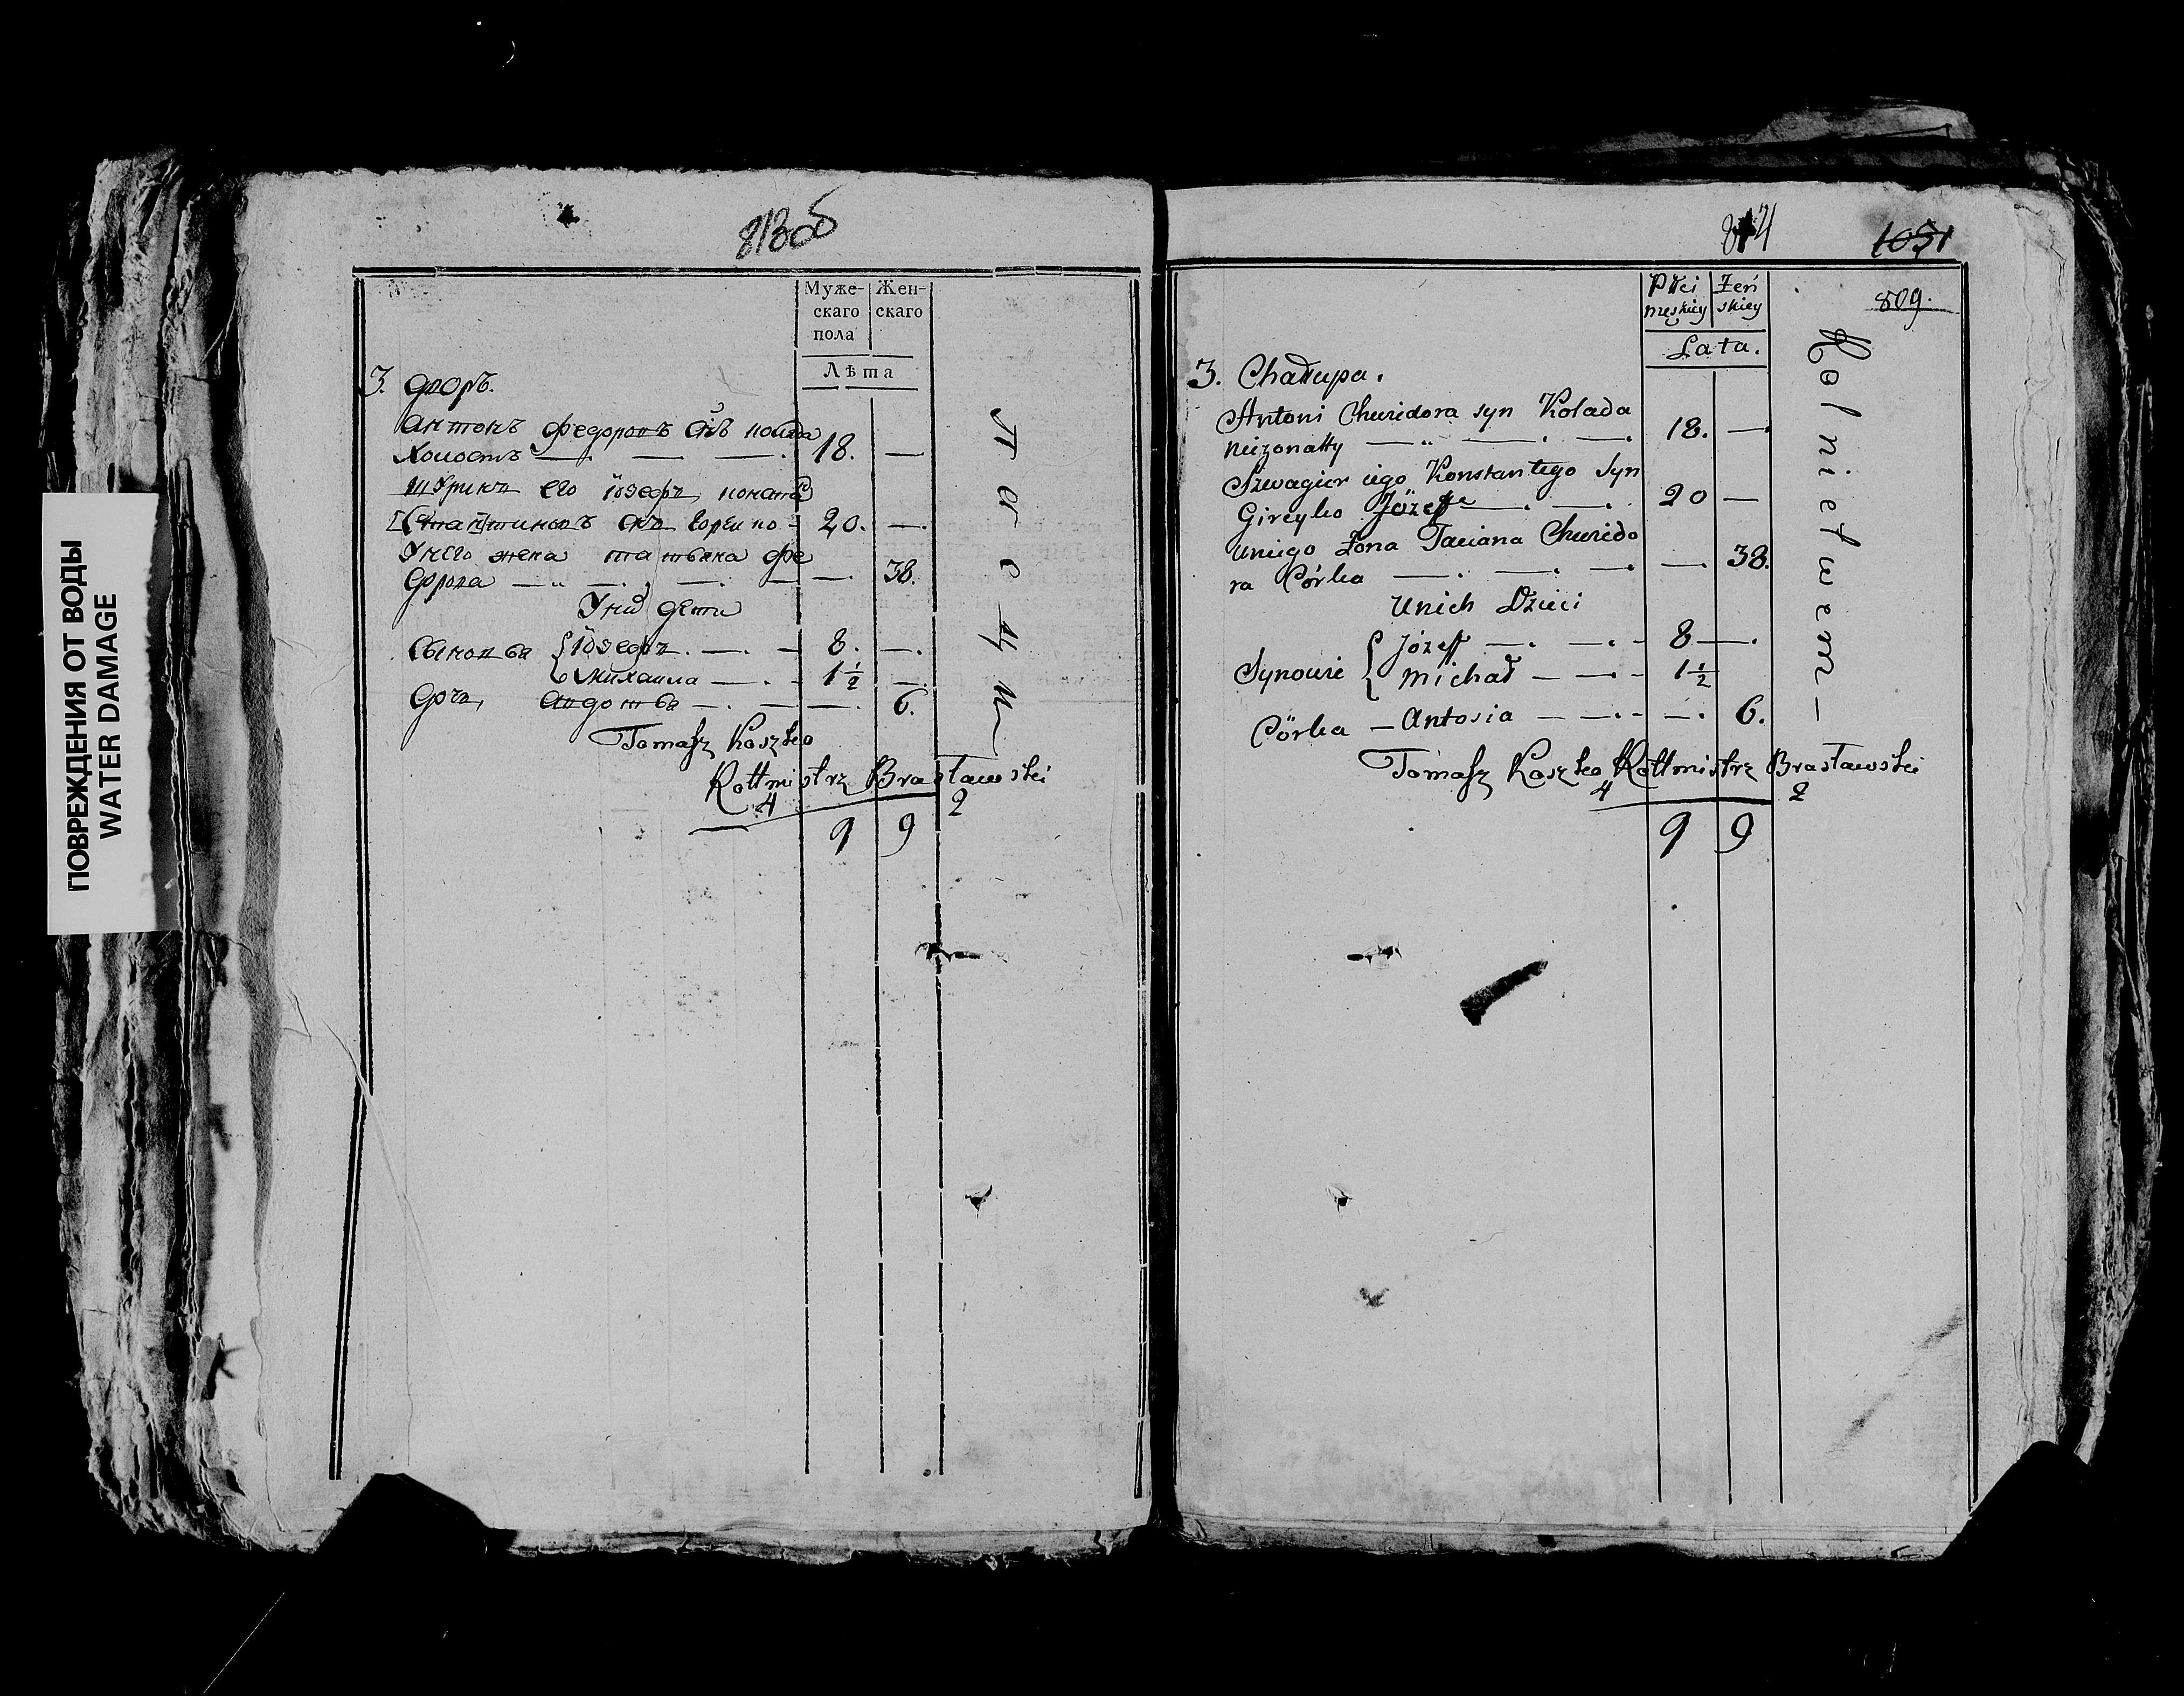 ПОВРЕЖДЕНИЯ ОТ ВОДЫ
WATER DAMAGE
813об
Муже-
скаго
пола
Жен-
скаго
Лѣта
3. дворъ.
Антонъ Федоровъ снъ
Холостъ — — — 18. —
Шуринъ его Іозефъ
20. —
У него жена татьяна фе
дорова — — — — 38.
У них дети
Сыновья { Іозефъ. — — 8. —
Михаила — — 1½ —
дочь, — — — 6.
Tomasz Koszko
Rottmistrz Brasławski
4 2
9 9
814
1051
809.
Płci
męskiey
Żeń
skiey
Lata.
3. Chałupa.
Antoni Chwidora syn Kolada
nieżonatty — — — 18. —
Szwagier iego Konstantego Syn
Gireyko Józeff — — 20 —
uniego Żona Taciana Chwido
ra Córka — — — — 38.
Unich Dzieci
Synowie { Józeff — — 8 —
Michał — — 1½
Córka — Antosia — — — 6.
Tomasz Koszko Rottmistrz Brasławski
4 2
9 9
Rolnictwem